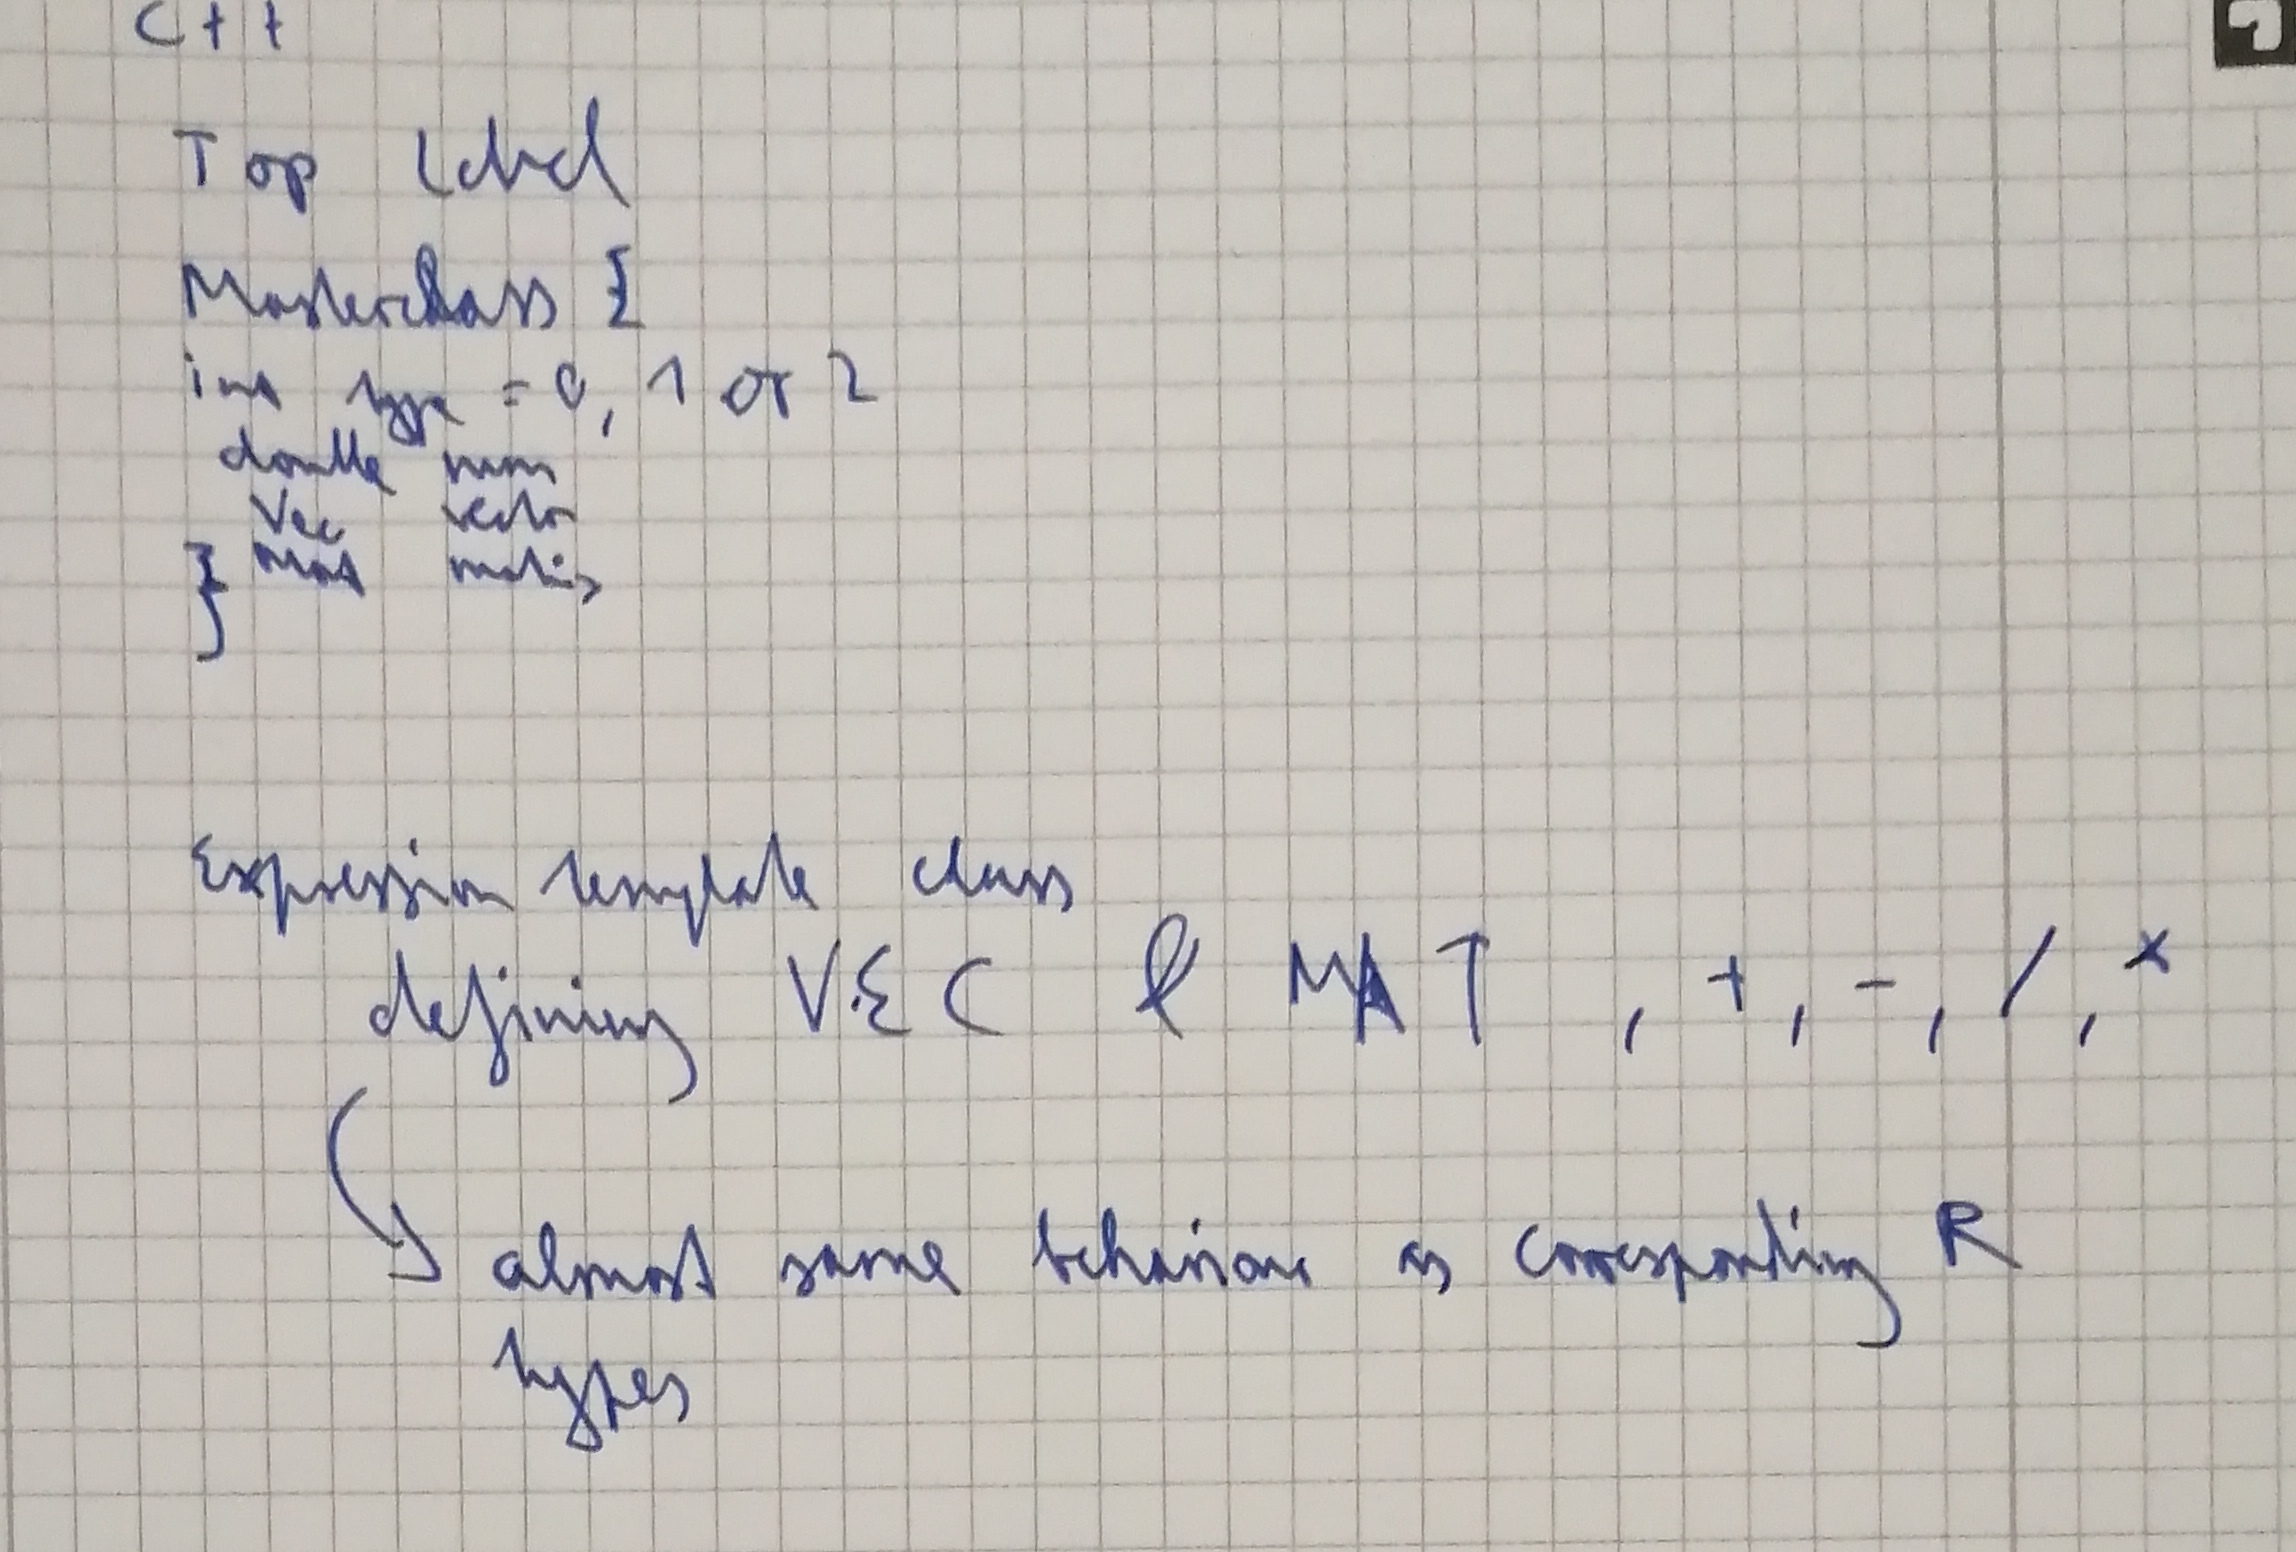 C++
Top Label
Masterclass {
int type = 0, 1 or 2
double num
Vec vector
} Mat matrix
Expression template class
defining VEC & MAT , +, -, /, *
almost same behaviour as corresponding R
types